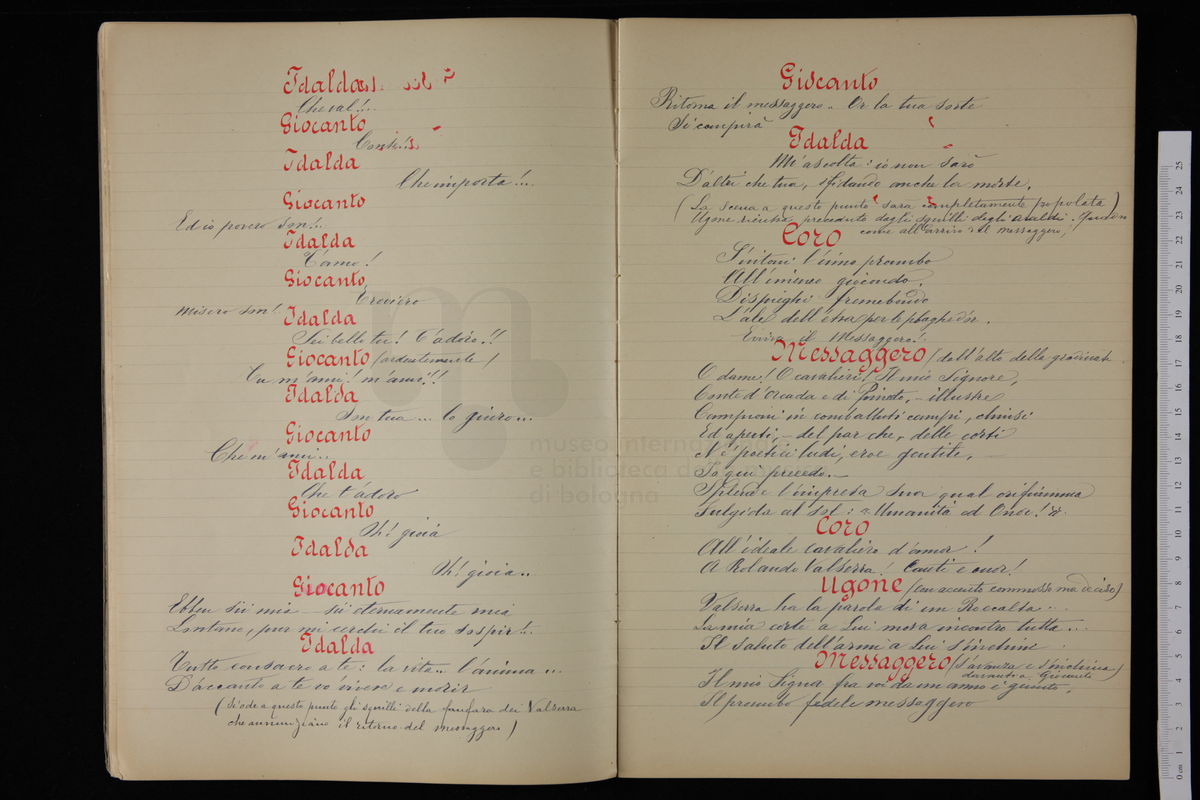 Idalda
Che val!..
Giocanto
Idalda
Che importa!...
Giocanto
Ed io povero son!..
Idalda
T'amo!
Giocanto
Troviero
Misero son!
Idalda
Sei bello tu! T'adoro!!
Giocanto (ardentemente)
Tu m'ami! m'ami!!
Idalda
Son tua... lo giuro...
Giocanto
Che m'ami..
Idalda
Che t'adoro
Giocanto
Ah! gioia
Idalda
Ah! gioia..
Giocanto
Ebben sii mia sii eternamente mia
Lontano, pur mi cerchi il tuo sospir!..
Idalda
Tutto consacro a te: la vita.. l'anima...
D'accanto a te vo' vivere e morir
(S'ode a questo punto gli squilli della fanfara dei Valserra
che annunziano il ritorno del messaggero)
Giocanto
Ritorna il messaggero.. Or la tua sorte
Si compirà
Idalda
M'ascolta: io non sarò
D'altri che tua, sfidando anche la morte.
(La scena a questo punto sarà completamente popolata)
Ugone rientra preceduto dagli squilli degli araldi.
come all'arrivo del messaggero,
Coro
S'intoni l'inno pronubo
All'imeneo giocondo,
Dispieghi fremebondo
L'ale dell'etra per le plaghe d'or.
Evviva il Messaggero!
Messaggero (dall'alto della gradinata
O dame! O cavalieri! Il mio Signore,
Conte d'Orcada e di illustre
Campioni in combattuti campi, chiusi
Ed aperti, - del par che, delle corti
Ne' poetici ludi, eroe gentile,
Io qui precedo.-
Splende l'impresa sua qual orifiamma
Fulgida al sol: "Umanità ed Onor!"
Coro
All'ideale cavaliero d'amor!
A Rolando Valserra! Canti e cuor!
Ugone (con accento commosso ma deciso)
Valserra ha la parola di un Roccalta..
La mia corte a Lui mova incontro tutta...
Il saluto dell'armi a Lui s'inchini
Messaggero (S'avanza e s'inchina)
davanti a Giocanto
Il mio Signor fra voi da un anno è giunto,
Il pronubo fedele messaggero
museo internazionale
e biblioteca della
di bologna